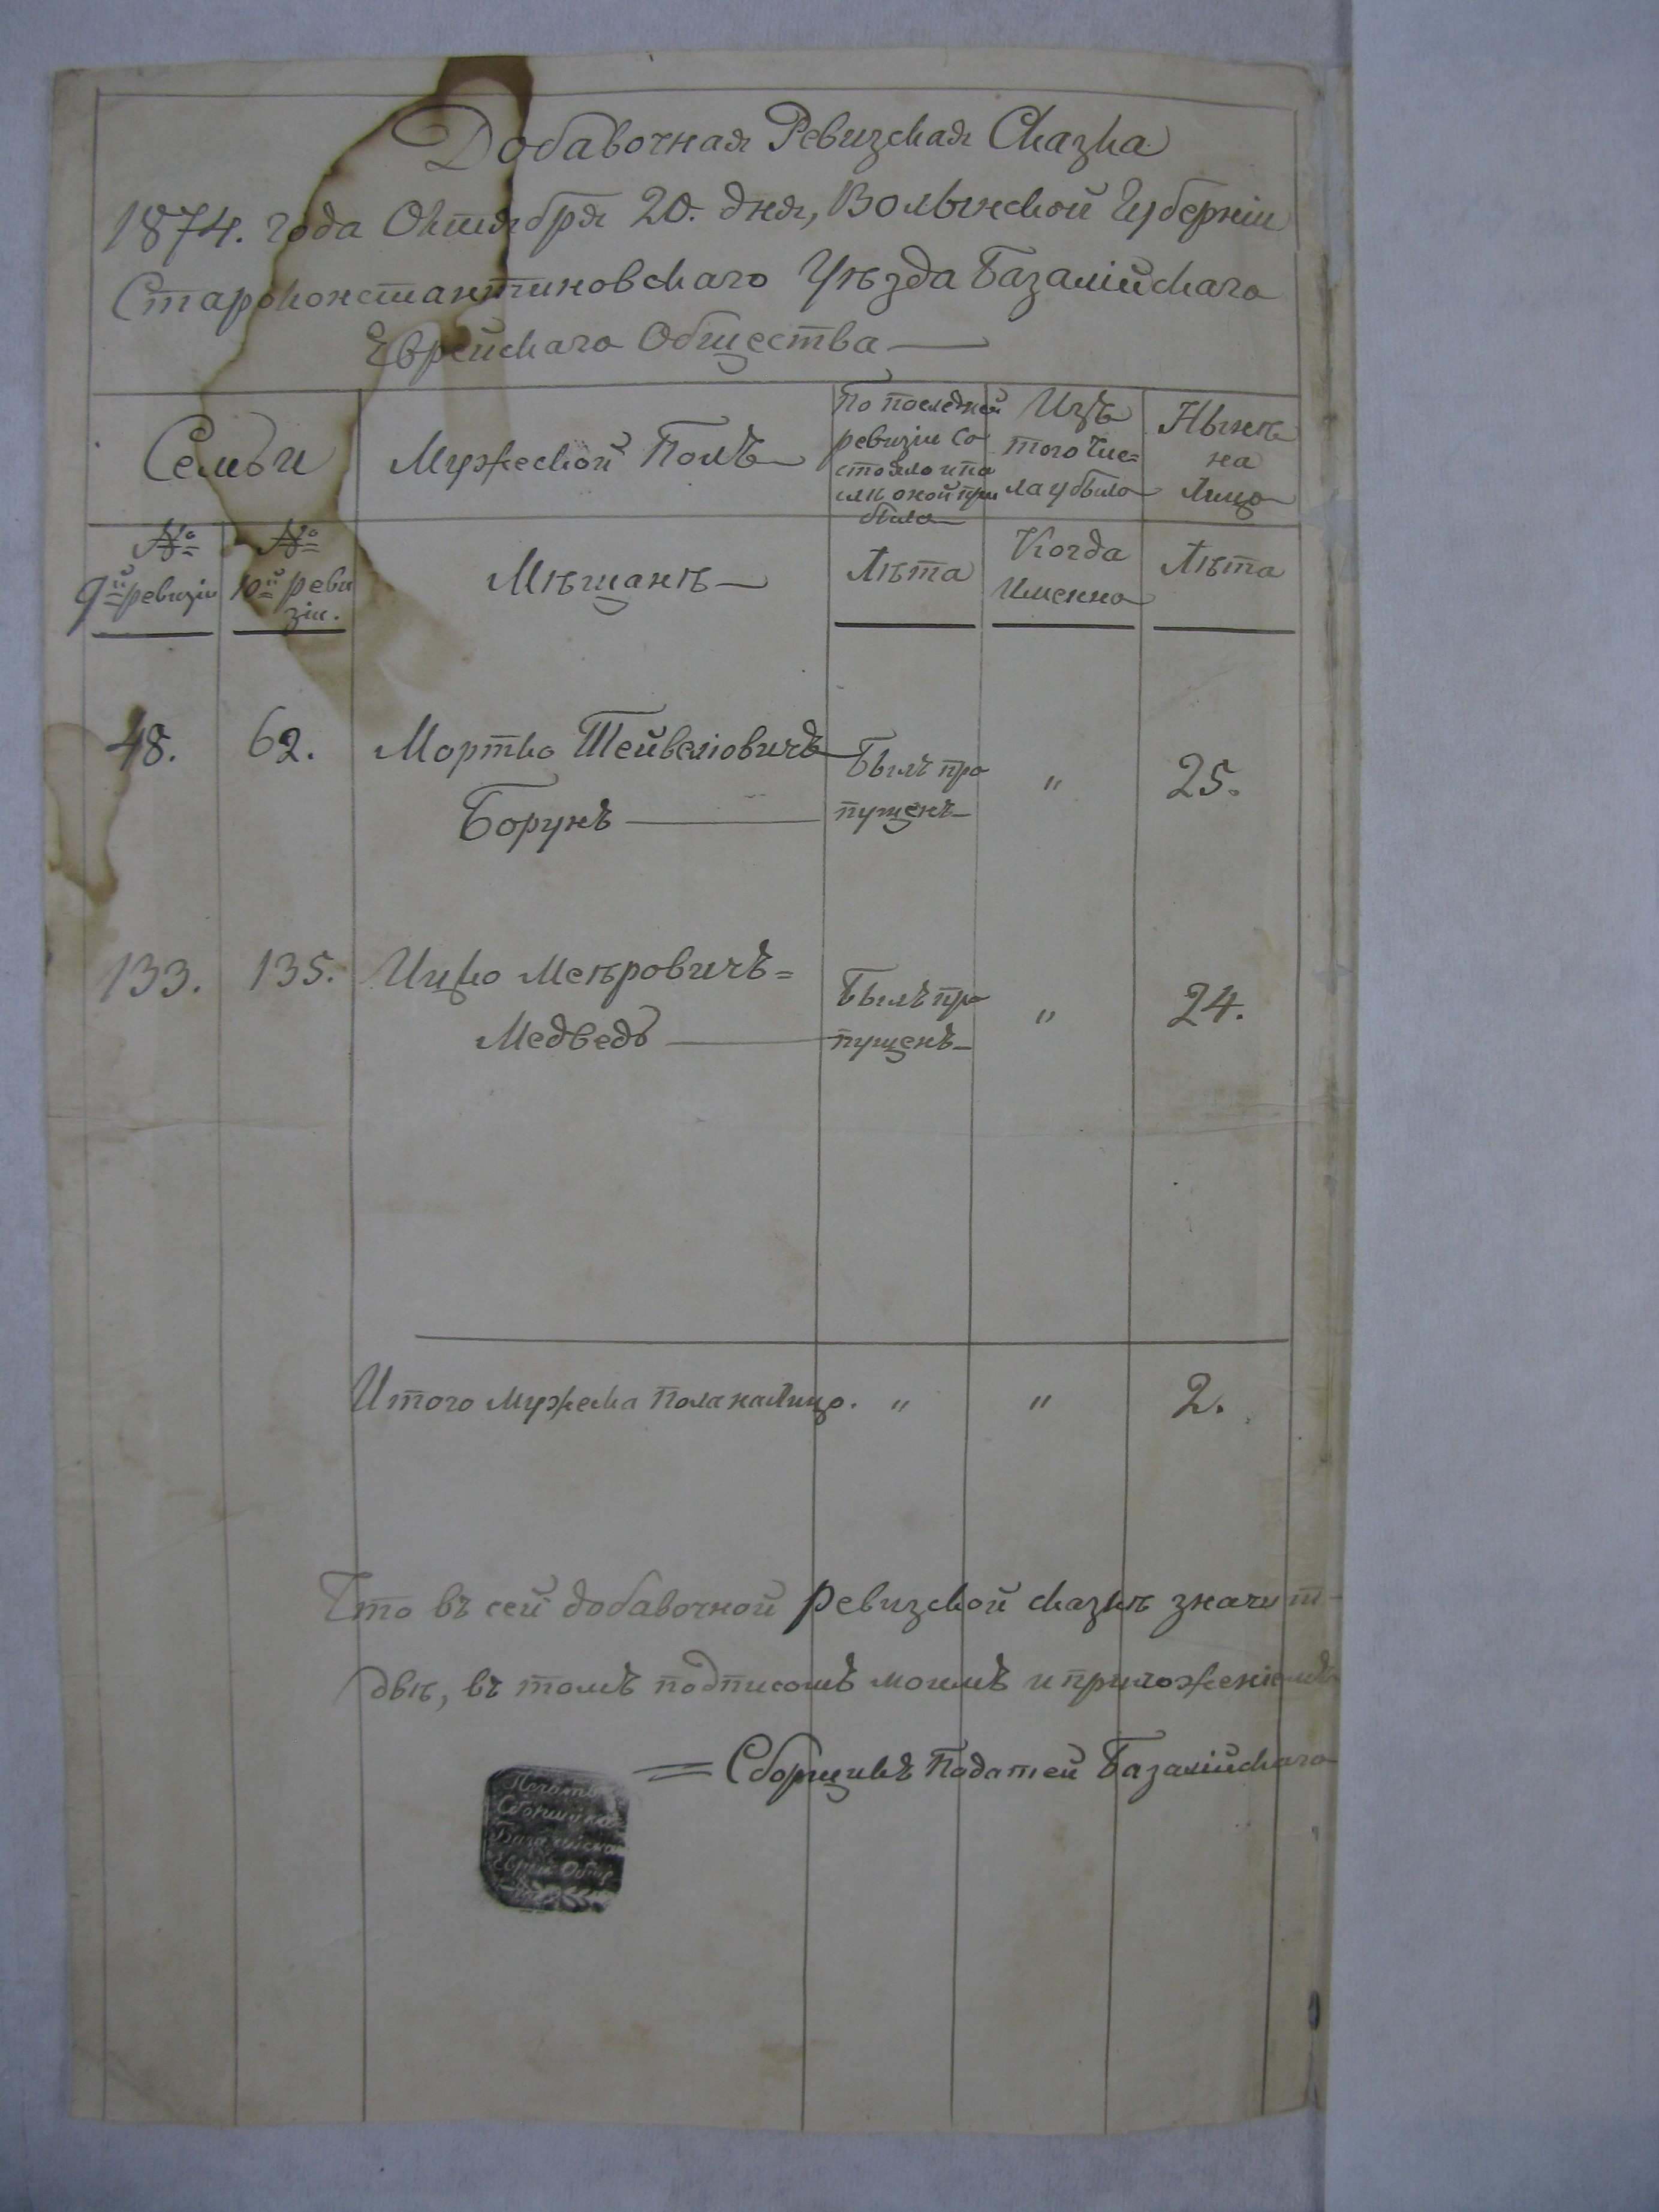 Добавочная Ревизская Сказка
1874. года Октября 20. дня, Волынской Губерніи
Староконстантиновскаго Уѣзда Базалійскаго
Еврейскаго Общества
Семьи
Мужеской Полъ
По последней
ревизіи со
стояло и по
слѣ оной при
было
Изъ
того Чис=
ла убыло
Нынѣ
на
Лицо
№
9й ревизіи
№
10й реви
зіи.
Мѣщанѣ
Лѣта
Когда
Именно
Лѣта
48. 62. Мортко Тейвеліовичъ
Борунъ
Былъ про
пущенъ
" 25.
133. 135. Ицко Меѣровичъ=
Медведь
Былъ про
пущенъ
" 24.
Итого мужеска пола налицо. " " 2.
Что въ сей добавочной ревизской сказкѣ значит-
двѣ, въ томъ подписомъ моимъ и приложеніемъ
= Сборщикъ Податей Базалійскаго
Печать
Сборщика
Базалійска
Еврей Общ